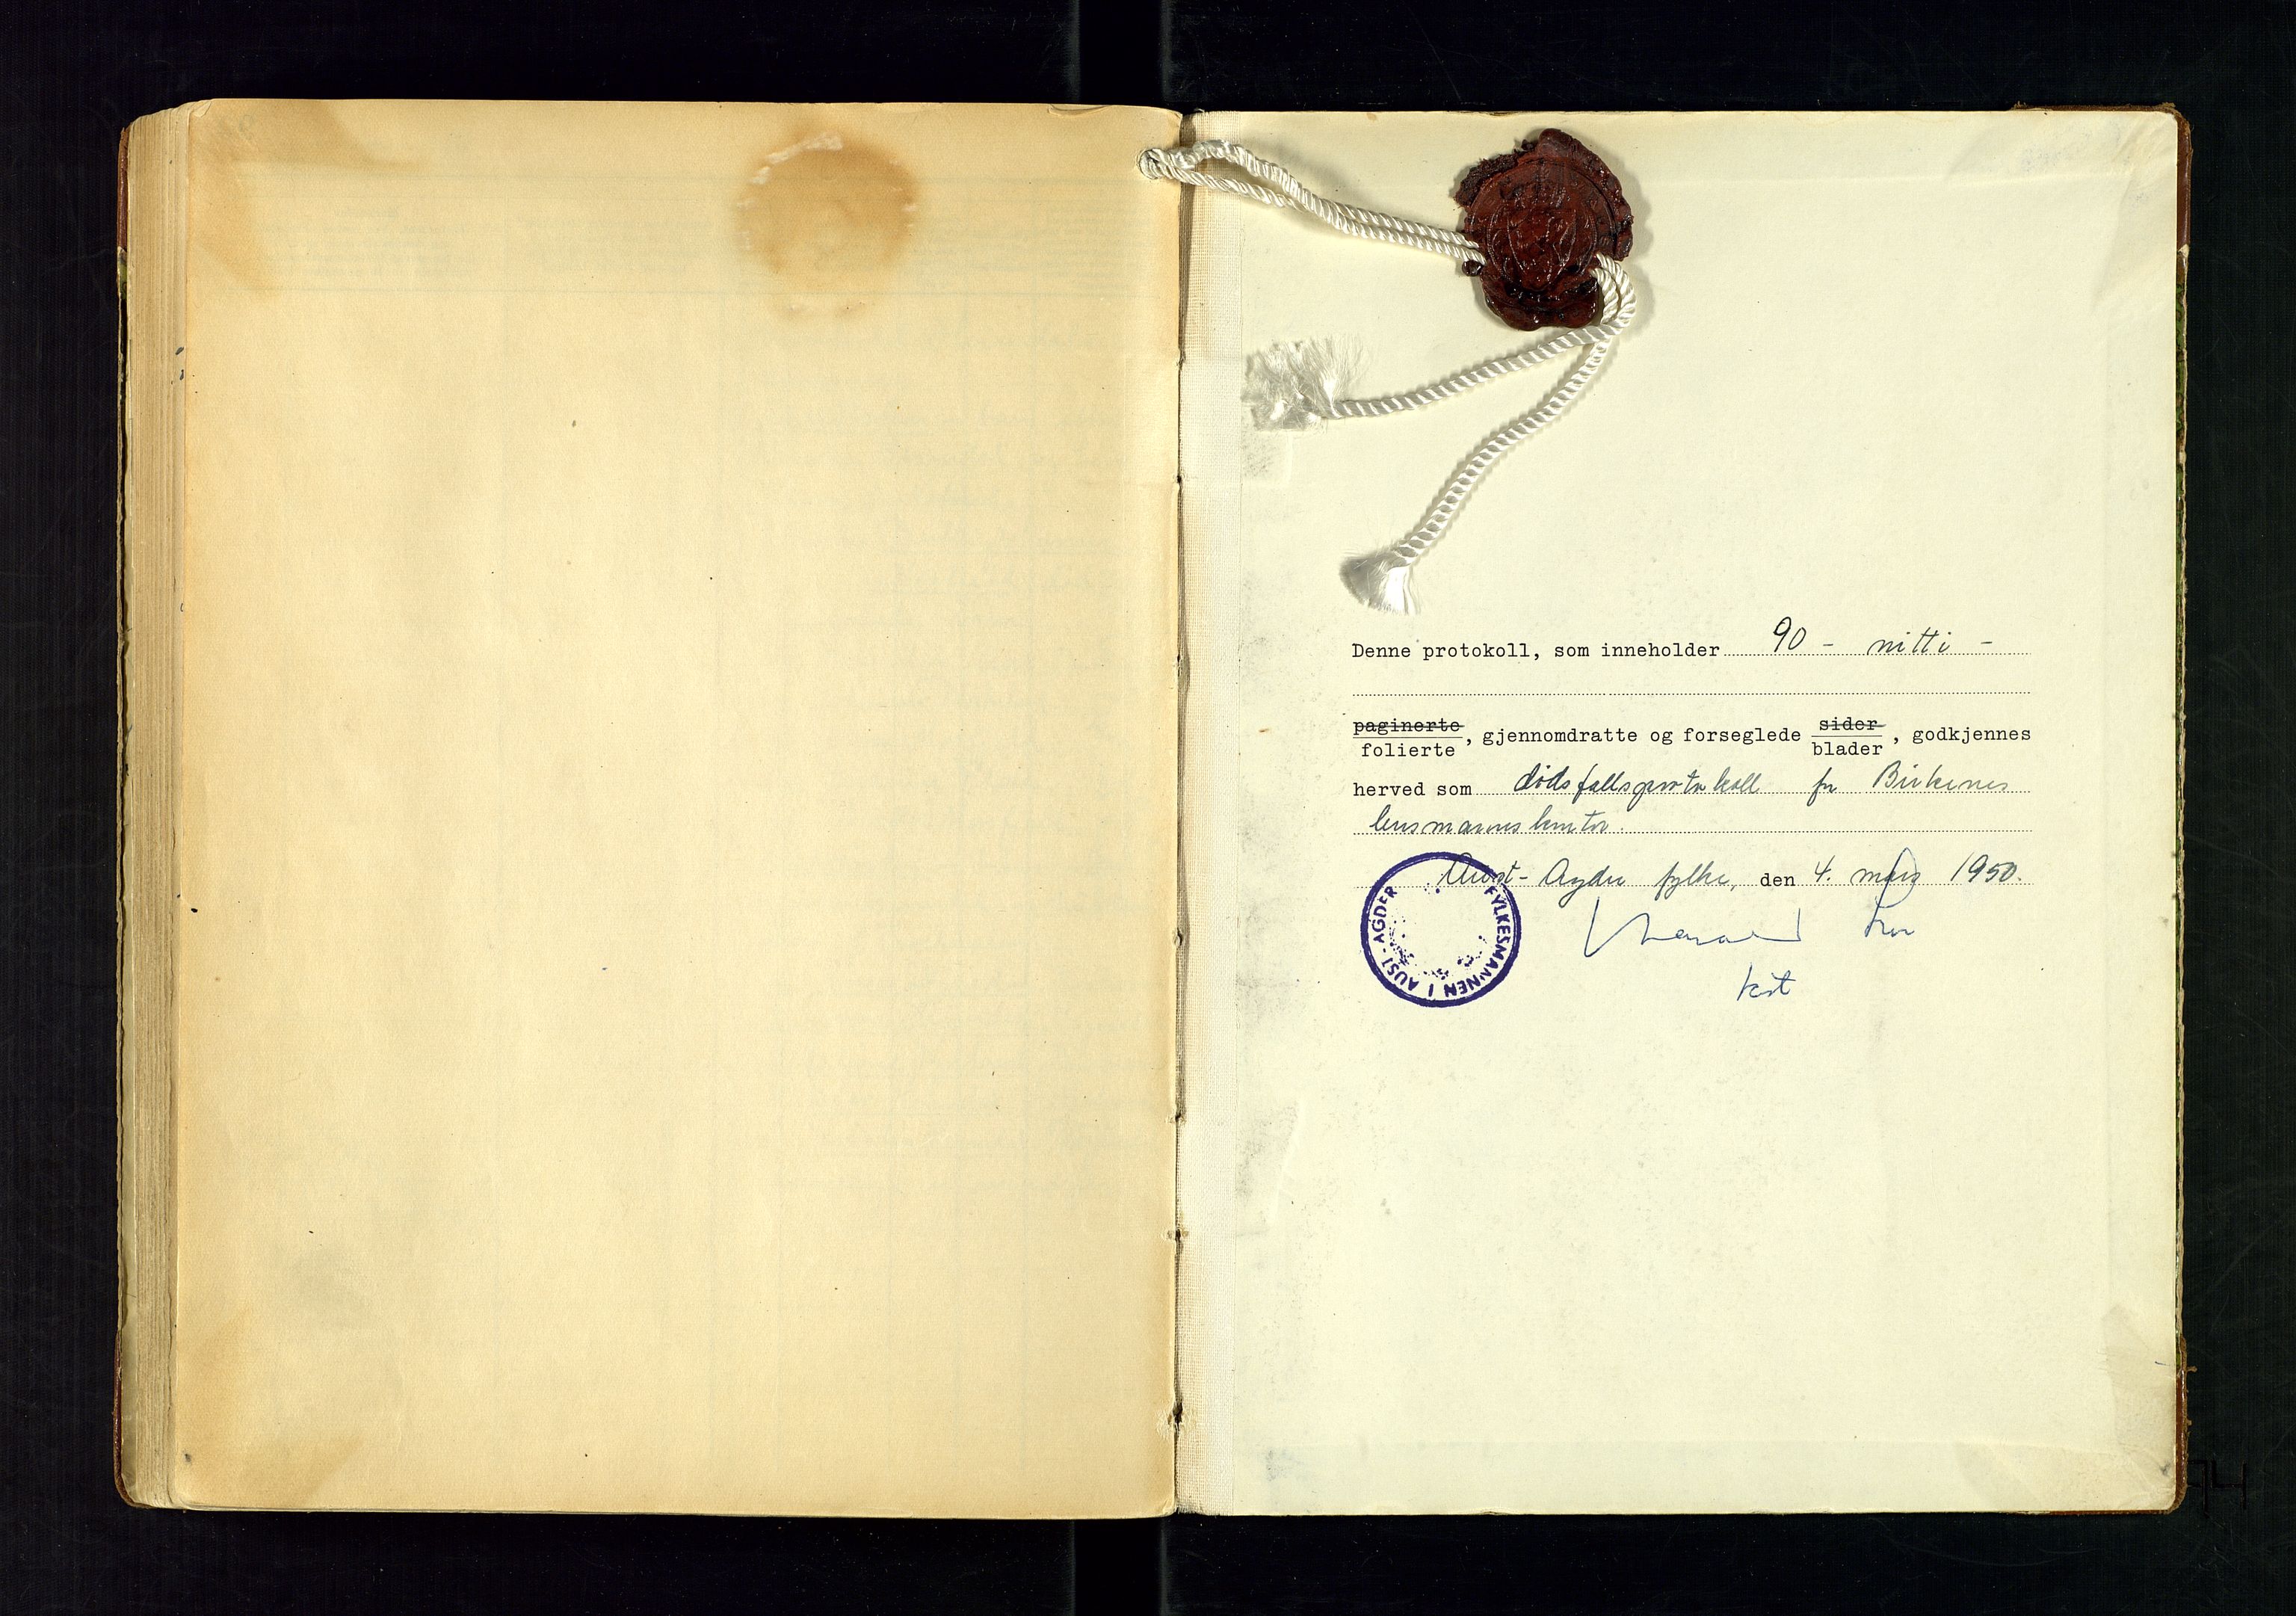 Denne protokoll, som inneholder 90 - nitti -
paginerte sider
folierte, gjennomdratte og forseglede blader, godkjennes
herved som dødsfallsprotokoll for Birkenes
lensmannskontor.
Aust-Agder fylke, den 4. mars 1950.
FYLKESMANNEN I AUST-AGDER